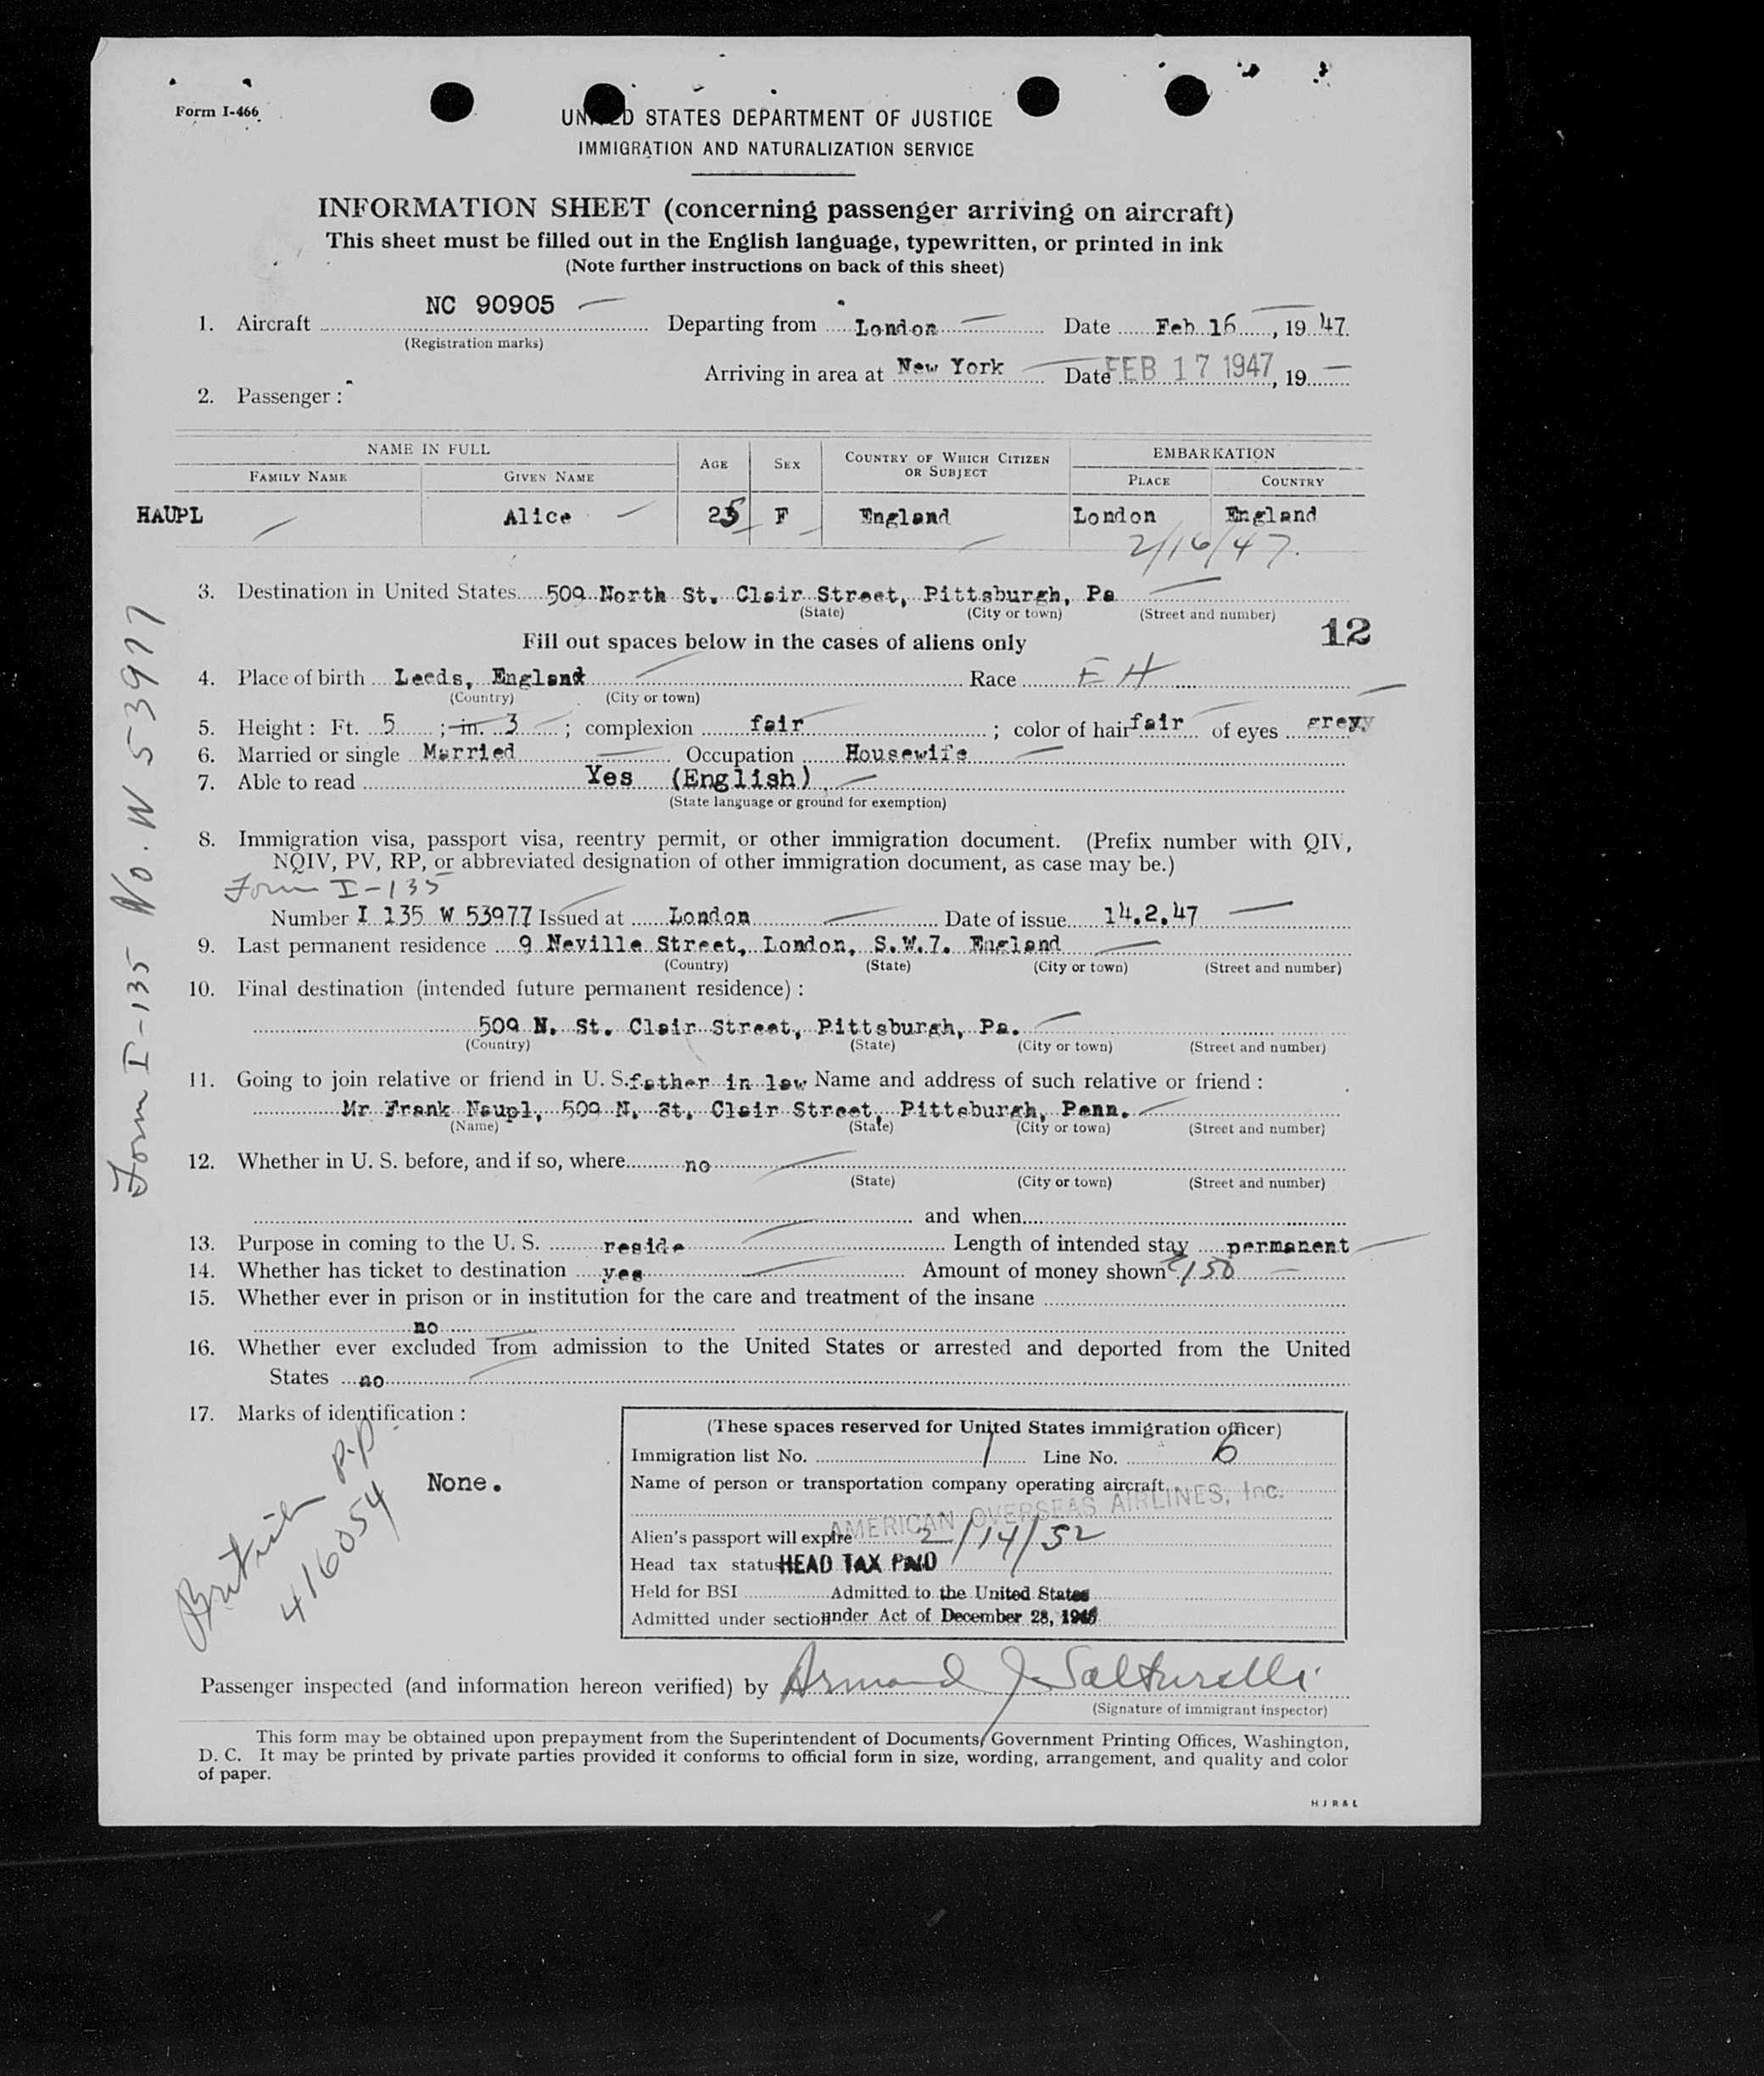 Form I-466
UNITED STATES DEPARTMENT OF JUSTICE
IMMIGRATION AND NATURALIZATION SERVICE
INFORMATION SHEET (concerning passenger arriving on aircraft)
This sheet must be filled out in the English language, typewritten, or printed in ink
(Note further instructions on back of this sheet)
1. Aircraft NC 90905 Departing from London Date Feb 16, 19 47
(Registration marks)
Arriving in area at New York Date FEB 17 1947, 19
2. Passenger:
NAME IN FULL AGE SEX COUNTRY OF WHICH CITIZEN OR SUBJECT EMBARKATION
FAMILY NAME GIVEN NAME PLACE COUNTRY
HAUPL Alice 25 F England London England
2/16/47.
3. Destination in United States 509 North St. Clair Street, Pittsburgh, Pa
(State) (City or town) (Street and number)
Fill out spaces below in the cases of aliens only 12
4. Place of birth Leeds, England Race
(Country) (City or town)
5. Height: Ft. 5; in. 3; complexion fair; color of hair fair of eyes grey
6. Married or single Married Occupation Housewife
7. Able to read Yes (English)
(State language or ground for exemption)
8. Immigration visa, passport visa, reentry permit, or other immigration document. (Prefix number with QIV,
NQIV, PV, RP, or abbreviated designation of other immigration document, as case may be.)
Form I-135
Number I 135 W 53977 Issued at London Date of issue 14.2.47
9. Last permanent residence 9 Neville Street, London, S.W.7. England
(Country) (State) (City or town) (Street and number)
10. Final destination (intended future permanent residence):
509 N. St. Clair Street, Pittsburgh, Pa.
(Country) (State) (City or town) (Street and number)
11. Going to join relative or friend in U. S. father in law Name and address of such relative or friend:
Mr Frank Naupl, 509 N. St. Clair Street, Pittsburgh, Penn.
(Name) (State) (City or town) (Street and number)
12. Whether in U. S. before, and if so, where no
(State) (City or town) (Street and number)
and when
13. Purpose in coming to the U. S. reside Length of intended stay permanent
14. Whether has ticket to destination yes Amount of money shown 150
15. Whether ever in prison or in institution for the care and treatment of the insane
no
16. Whether ever excluded from admission to the United States or arrested and deported from the United
States no
17. Marks of identification:
None.
British P.P.
416054
Form I-135 No. W 53977
(These spaces reserved for United States immigration officer)
Immigration list No. 1 Line No. 6
Name of person or transportation company operating aircraft
AMERICAN OVERSEAS AIRLINES, Inc.
Alien's passport will expire 2/14/52
Head tax status HEAD TAX PAID
Held for BSI Admitted to the United States
Admitted under section under Act of December 28, 1945
Passenger inspected (and information hereon verified) by Armand J. Salturelli
(Signature of immigrant inspector)
This form may be obtained upon prepayment from the Superintendent of Documents, Government Printing Offices, Washington,
D. C. It may be printed by private parties provided it conforms to official form in size, wording, arrangement, and quality and color
of paper.
H J R & L